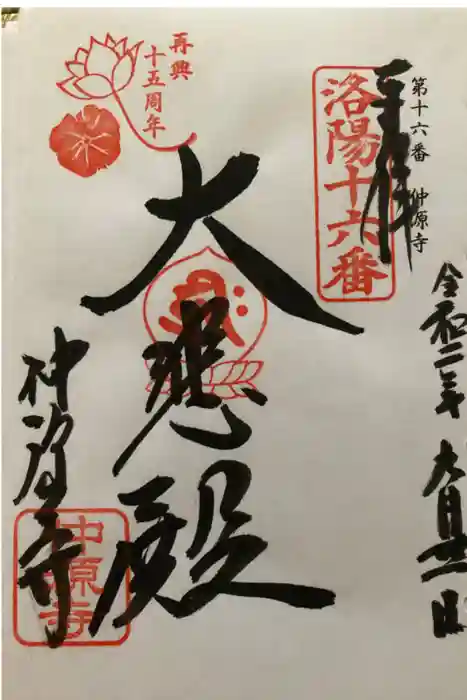 再興
十五周年
第十六番 仲源寺
洛陽十六番
奉拝
令和二年
大悲殿
仲源寺
仲源寺